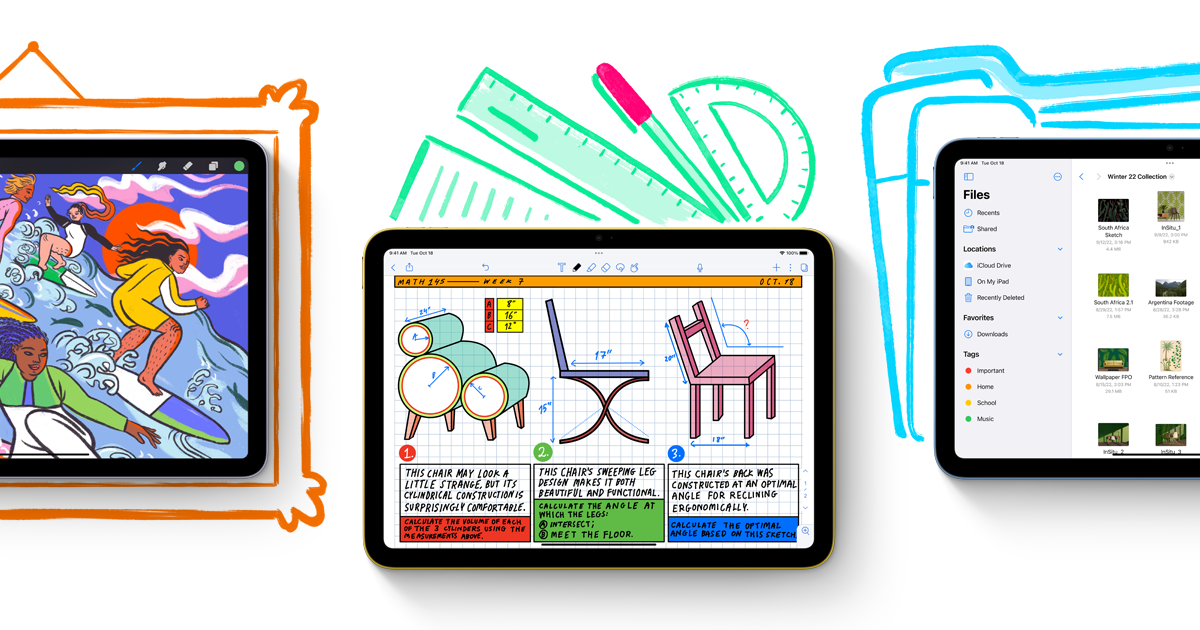 9:41 AM Tue Oct 18
100%
MATH 145 WEEK 7 OCT. 18
24"
A
B
C
A 8"
B 16"
C 12"
17"
15"
20"
?
18"
1.
THIS CHAIR MAY LOOK A
LITTLE STRANGE, BUT ITS
CYLINDRICAL CONSTRUCTION IS
SURPRISINGLY COMFORTABLE.
CALCULATE THE VOLUME OF EACH
OF THE 3 CYLINDERS USING THE
MEASUREMENTS ABOVE.
2.
THIS CHAIR'S SWEEPING LEG
DESIGN MAKES IT BOTH
BEAUTIFUL AND FUNCTIONAL.
CALCULATE THE ANGLE AT
WHICH THE LEGS:
A INTERSECT;
B MEET THE FLOOR.
3.
THIS CHAIR'S BACK WAS
CONSTRUCTED AT AN OPTIMAL
ANGLE FOR RECLINING
ERGONOMICALLY.
CALCULATE THE OPTIMAL
ANGLE BASED ON THIS SKETCH
1
2
9:41 AM Tue Oct 18
Files
Recents
Shared
Locations
iCloud Drive
On My iPad
Recently Deleted
Favorites
Downloads
Tags
Important
Home
School
Music
Winter 22 Collection
South Africa
Sketch
9/12/22, 3:16 PM
4.4 MB
InSitu_1
9/8/22, 3:00 PM
942 KB
South Africa 2.1
8/29/22, 1:57 PM
7.5 MB
Argentina Footage
8/28/22, 3:28 PM
Wallpaper FPO
8/15/22, 3:03 PM
29.1 MB
Pattern Reference
8/10/22, 1:23 PM
InSitu_2
InSitu_3